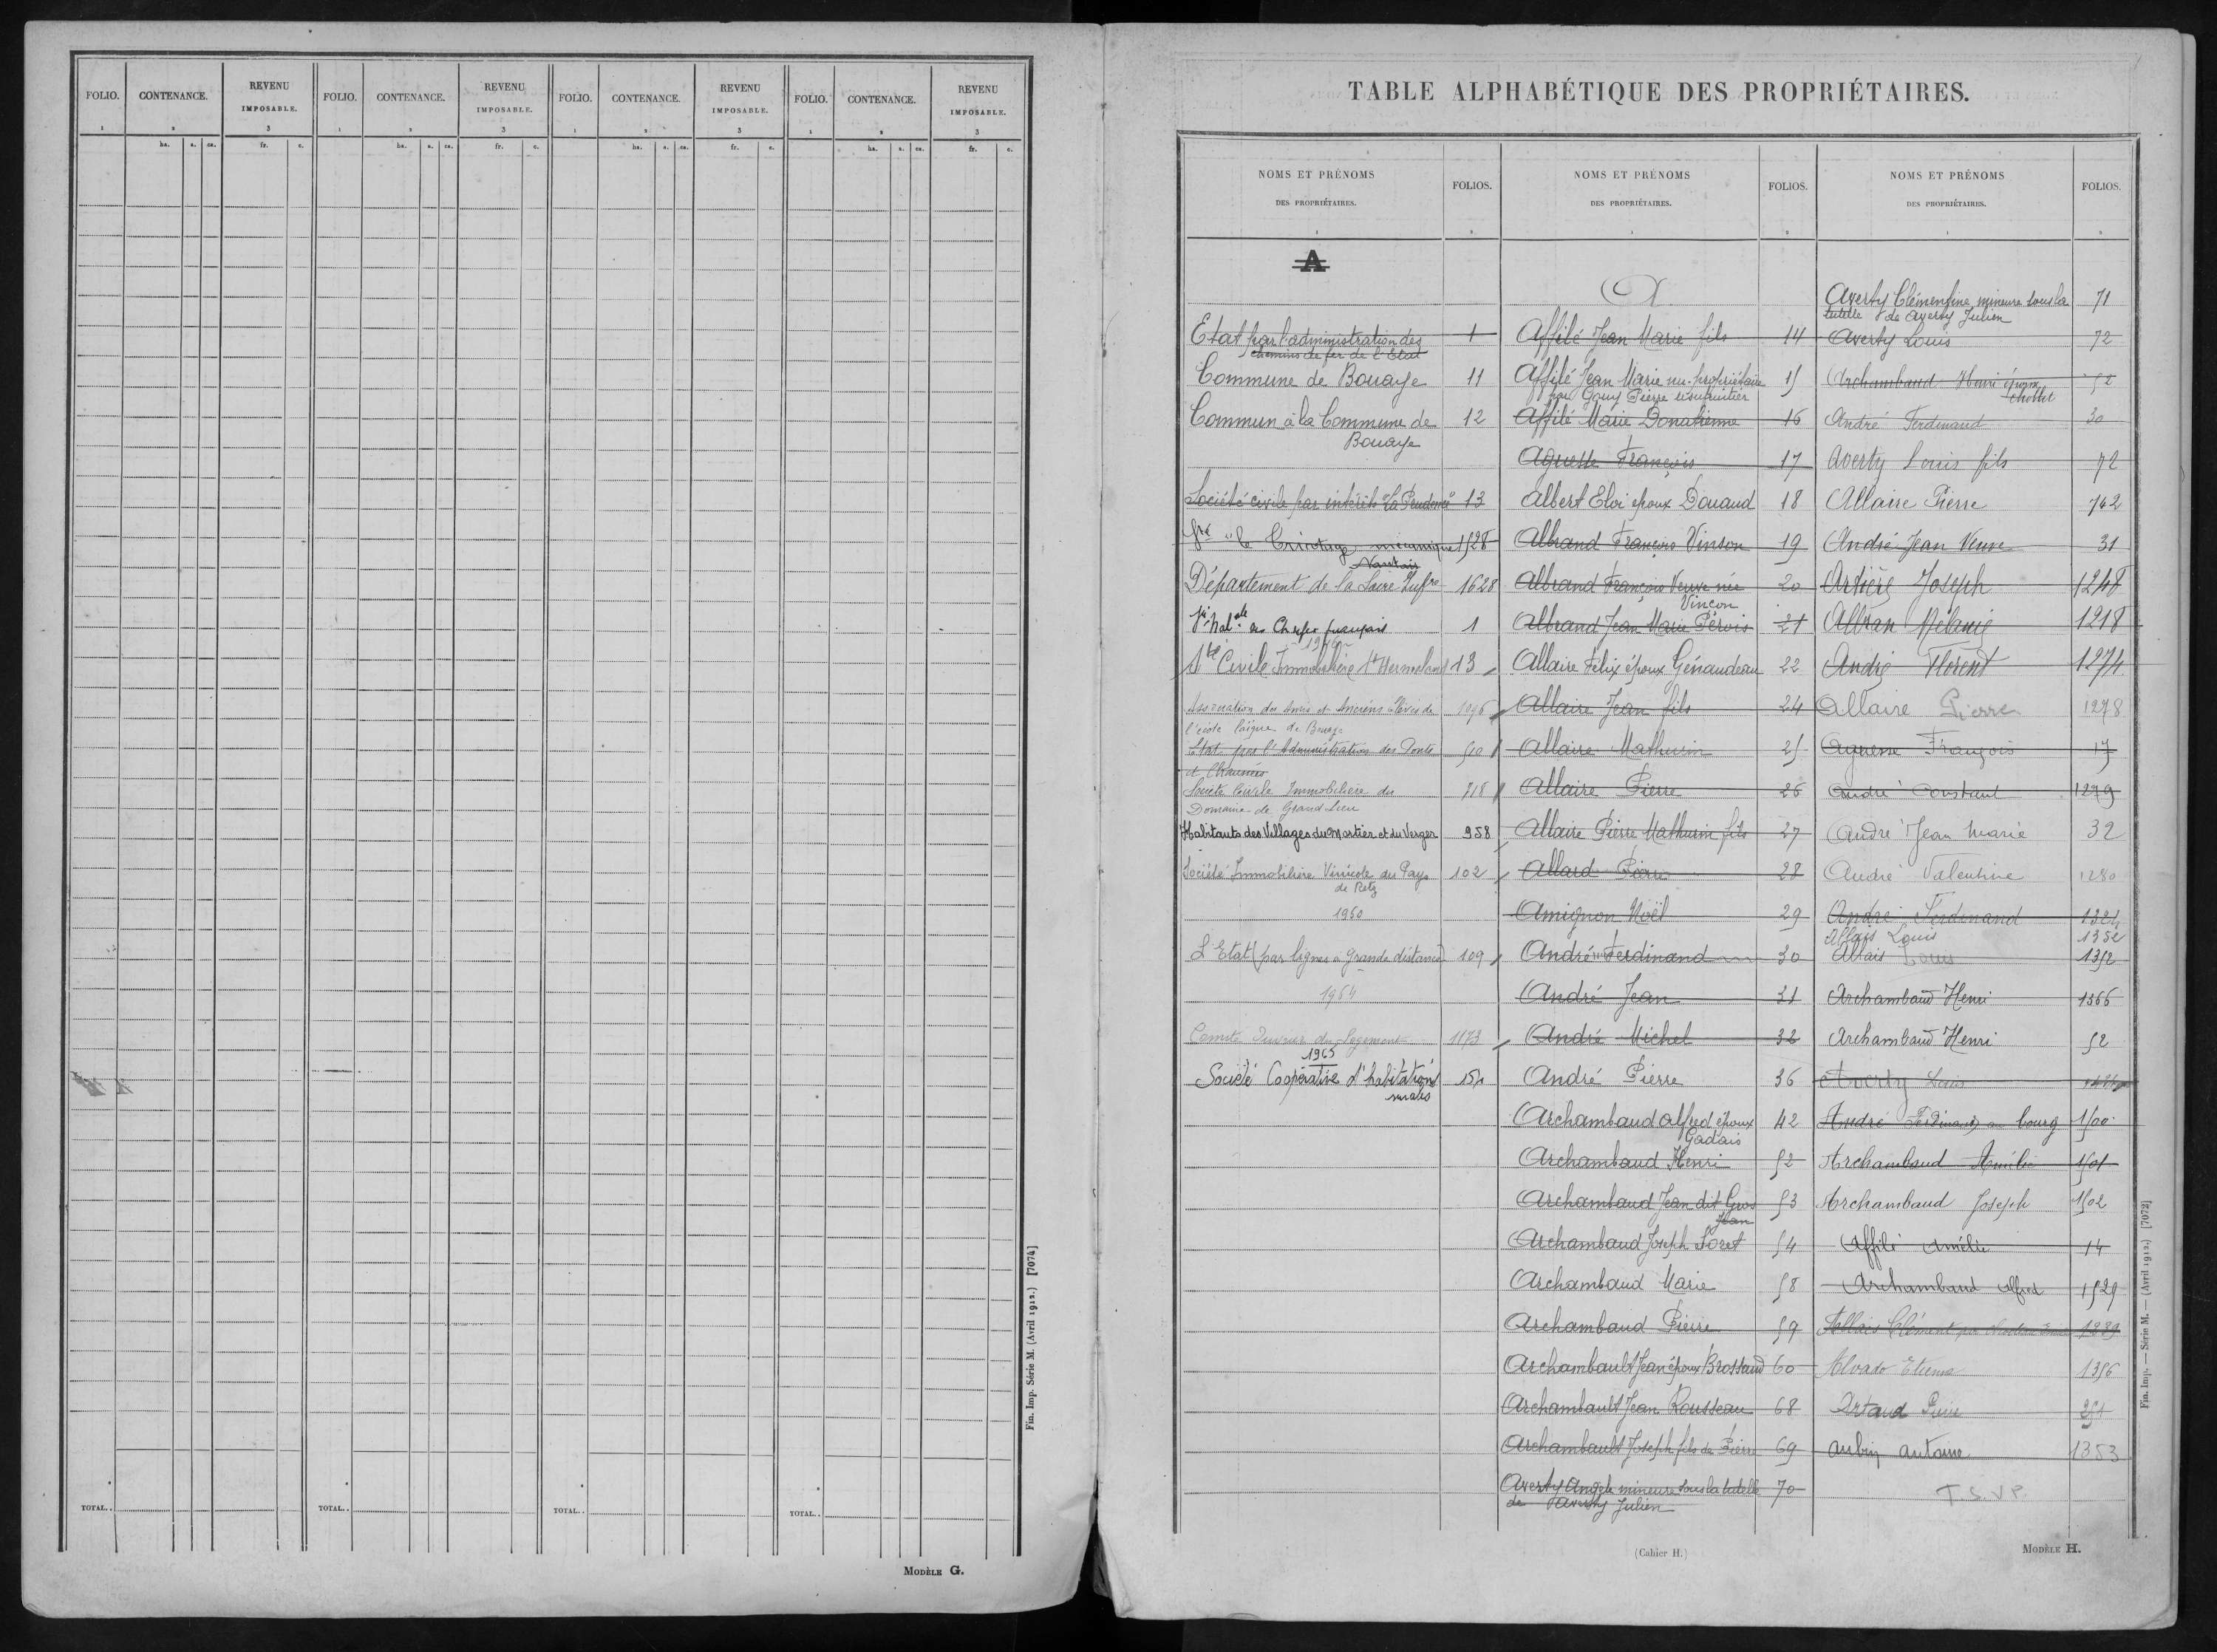 FOLIO. CONTENANCE. REVENU IMPOSABLE. FOLIO. CONTENANCE. REVENU IMPOSABLE. FOLIO. CONTENANCE. REVENU IMPOSABLE. FOLIO. CONTENANCE. REVENU IMPOSABLE.
1 2 3 1 2 3 1 2 3 1 2 3
ha. a. ca. fr. c. ha. a. ca. fr. c. ha. a. ca. fr. c. ha. a. ca. fr. c.
TOTAL.. TOTAL.. TOTAL.. TOTAL..
Fin. Imp. Série M. (Avril 1912.) [7074]
MODÈLE G.
TABLE ALPHABÉTIQUE DES PROPRIÉTAIRES.
NOMS ET PRÉNOMS DES PROPRIÉTAIRES. FOLIOS.
A
Etat par l'administration des 1
chemins de fer de l'Etat
Commune de Bouaye 11
Commun à la Commune de 12
Bouaye
Société civile par intérêts "La Prudence" 13
Sté "le Tricotage mécanique 1528
Nantais
Département de la Loire Infre 1628
Sté Nale des Ch. de fer français 1
Sté Civile Immobilière St Hermeland 13
Association des Amis et Anciens Elèves de 1096
l'école laïque de Bouaye
Etat par l'Administration des Ponts 510
et Chaussées
Société Civile Immobilière du 718
Domaine de Grand Lieu
Habitants des Villages du Mortier et du Verger 958
Société Immobilière Vinicole du Pays 102
de Retz
1950
L'Etat (par lignes à grande distance) 109
1954
Comité Ouvrier du Logement 1173
1965
Société Coopérative d'habitations 154
rurales
NOMS ET PRÉNOMS DES PROPRIÉTAIRES. FOLIOS.
A
Affilé Jean Marie fils 14
Affilé Jean Marie nu-propriétaire 15
par Gouy Pierre usufruitier
Affilé Marie Donatienne 16
Aguesse François 17
Albert Eloi époux Douaud 18
Albrand François Vinson 19
Albrand François Veuve née 20
Vinçon
Albrand Jean Marie Pérois 21
Allaire Félix époux Génaudeau 22
Allaire Jean fils 24
Allaire Mathurin 25
Allaire Pierre 26
Allaire Pierre Mathurin fils 27
Allard Pierre 28
Amignon Noël 29
André Ferdinand 30
André Jean 31
André Michel 32
André Pierre 36
Archambaud Alfred époux 42
Gadais
Archambaud Henri 52
Archambaud Jean dit Gros 53
Jean
Archambaud Joseph Loret 54
Archambaud Marie 58
Archambaud Pierre 59
Archambault Jean époux Brossaud 60
Archambault Jean Rousseau 68
Archambault Joseph fils de Pierre 69
Averty Angèle mineure sous la tutelle 70
de Averty Julien
NOMS ET PRÉNOMS DES PROPRIÉTAIRES. FOLIOS.
Averty Clémentine mineure sous la 71
tutelle de Averty Julien
Averty Louis 72
Archambaud Henri époux 52
Chollet
André Ferdinand 30
Averty Louis fils 72
Allaire Pierre 742
André Jean Veuve 31
Artière Joseph 1248
Albran Mélanie 1218
André Florent 1274
Allaire Pierre 1278
Aguesse François 17
André Constant 1279
André Jean Marie 32
André Valentine 1280
André Ferdinand 1324
Allais Louis 1352
Allais Louis 1352
Archambaud Henri 1366
Archambaud Henri 52
Averty Louis
André Ferdinand au bourg 1500
Archambaud Amélie 1501
Archambaud Joseph 1502
Affilé Amélie 14
Archambaud Alfred 1529
Allais Clément 1239
Alvado Etienne 1356
Artaud Pierre 251
Aubin Antoine 1353
T.S.V.P.
(Cahier H.)
MODÈLE H.
Fin. Imp. — Série M. — (Avril 1912.) [7072]